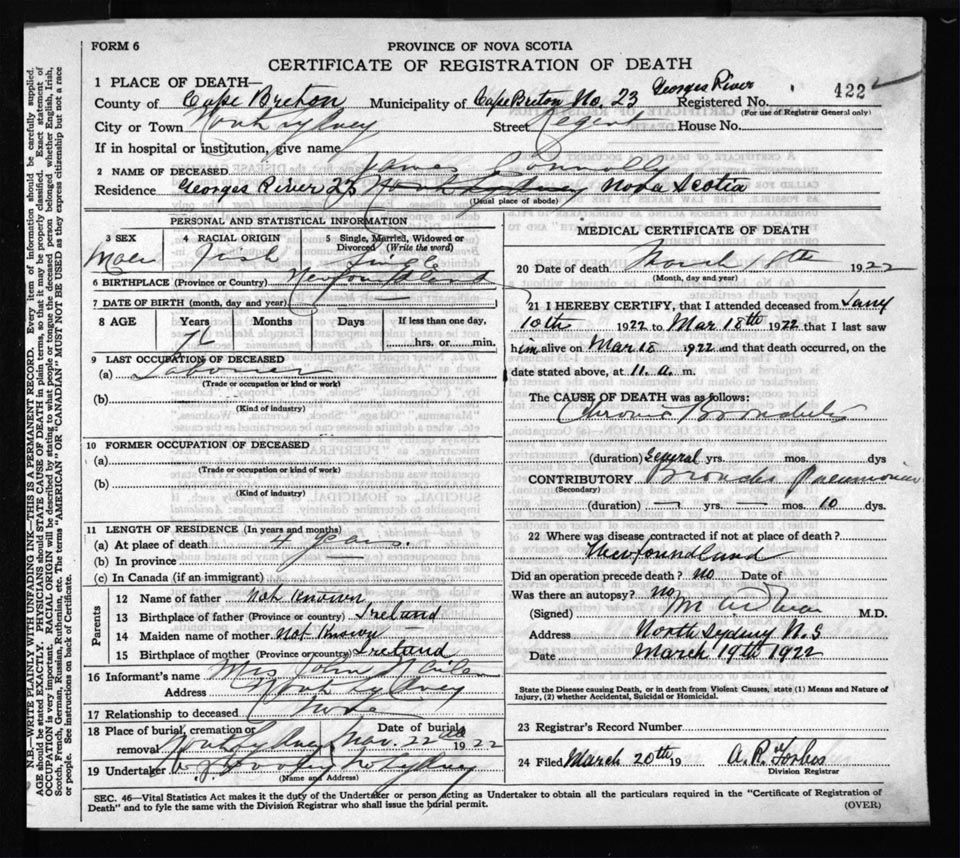 FORM 6
PROVINCE OF NOVA SCOTIA
CERTIFICATE OF REGISTRATION OF DEATH
1 PLACE OF DEATH— Georges River 422
County of Cape Breton Municipality of Cape Breton No. 23 Registered No.
(For use of Registrar General only)
City or Town North Sydney Street Regent House No.
If in hospital or institution, give name
2 NAME OF DECEASED James Connolly
Residence Georges River 23 North Sydney Nova Scotia
(Usual place of abode)
PERSONAL AND STATISTICAL INFORMATION
3 SEX 4 RACIAL ORIGIN 5 Single, Married, Widowed or Divorced (Write the word)
Male Irish Single
6 BIRTHPLACE (Province or Country) Newfoundland
7 DATE OF BIRTH (month, day and year)
8 AGE Years Months Days If less than one day,
72 hrs. or min.
9 LAST OCCUPATION OF DECEASED
(a) Labourer
(Trade or occupation or kind or work)
(b)
(Kind of industry)
10 FORMER OCCUPATION OF DECEASED
(a)
(Trade or occupation or kind of work)
(b)
(Kind of industry)
11 LENGTH OF RESIDENCE (In years and months)
(a) At place of death 4 years.
(b) In province
(c) In Canada (if an immigrant)
Parents
12 Name of father Not Known
13 Birthplace of father (Province or country) Ireland
14 Maiden name of mother Not Known
15 Birthplace of mother (Province or country) Ireland
16 Informant's name Mrs John
Address North Sydney
17 Relationship to deceased None
18 Place of burial, cremation or removal North Sydney Date of burial Mar. 22nd 1922
19 Undertaker No Sydney
(Name and Address)
MEDICAL CERTIFICATE OF DEATH
20 Date of death March 18th 1922
(Month, day and year)
21 I HEREBY CERTIFY, that I attended deceased from Jany
10th 1922 to Mar 18th 1922 that I last saw
him alive on Mar 18 1922 and that death occurred, on the
date stated above, at 11. a. m.
The CAUSE OF DEATH was as follows:
Chronic Bronchitis
(duration) Several yrs. mos. dys
CONTRIBUTORY Broncho Pneumonia
(Secondary)
(duration) yrs. mos. 10 dys.
22 Where was disease contracted if not at place of death?
Newfoundland
Did an operation precede death? No Date of
Was there an autopsy? No
(Signed) M.D.
Address North Sydney N.S
Date March 19th 1922
State the Disease causing Death, or in death from Violent Causes, state (1) Means and Nature of
Injury, (2) whether Accidental, Suicidal or Homicidal.
23 Registrar's Record Number
24 Filed March 20th 19 A. R. Forbes
Division Registrar
SEC. 46—Vital Statistics Act makes it the duty of the Undertaker or person acting as Undertaker to obtain all the particulars required in the "Certificate of Registration of
Death" and to fyle the same with the Division Registrar who shall issue the burial permit.
(OVER)
N.B.—WRITE PLAINLY WITH UNFADING INK—THIS IS A PERMANENT RECORD. Every item of information should be carefully supplied.
AGE should be stated EXACTLY. PHYSICIANS should STATE CAUSE OF DEATH in plain terms, so that it may be properly classified. Exact statement of
OCCUPATION is very important. RACIAL ORIGIN will be described by stating to what people or tongue the deceased person belonged whether English, Irish,
Scotch, French, German, Russian, Ruthenian, etc. The terms "AMERICAN" OR "CANADIAN" MUST NOT BE USED as they express citizenship but not a race
or people. See instructions on back of Certificate.